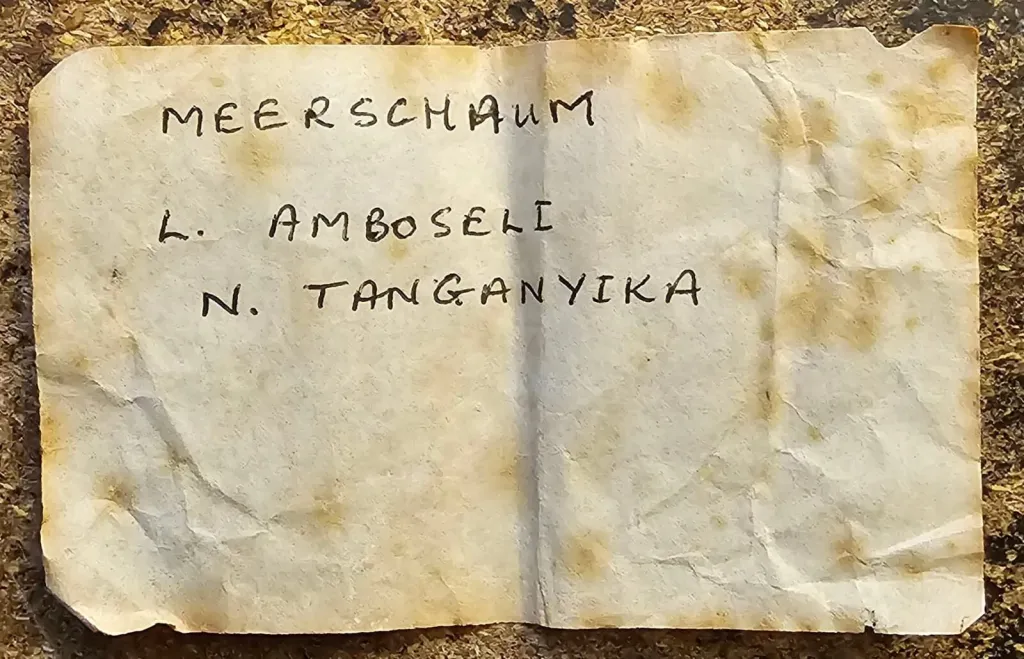 MEERSCHAUM
L. AMBOSELI
N. TANGANYIKA